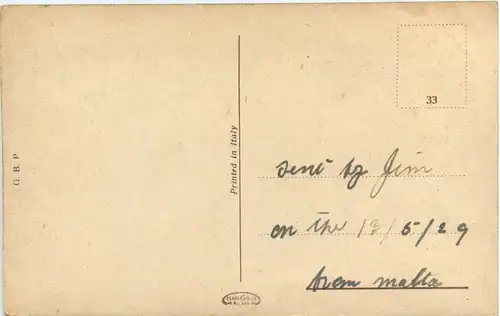 33
G. B. P.
Printed in Italy
sent by Jim
on the 13/5/29
from malta